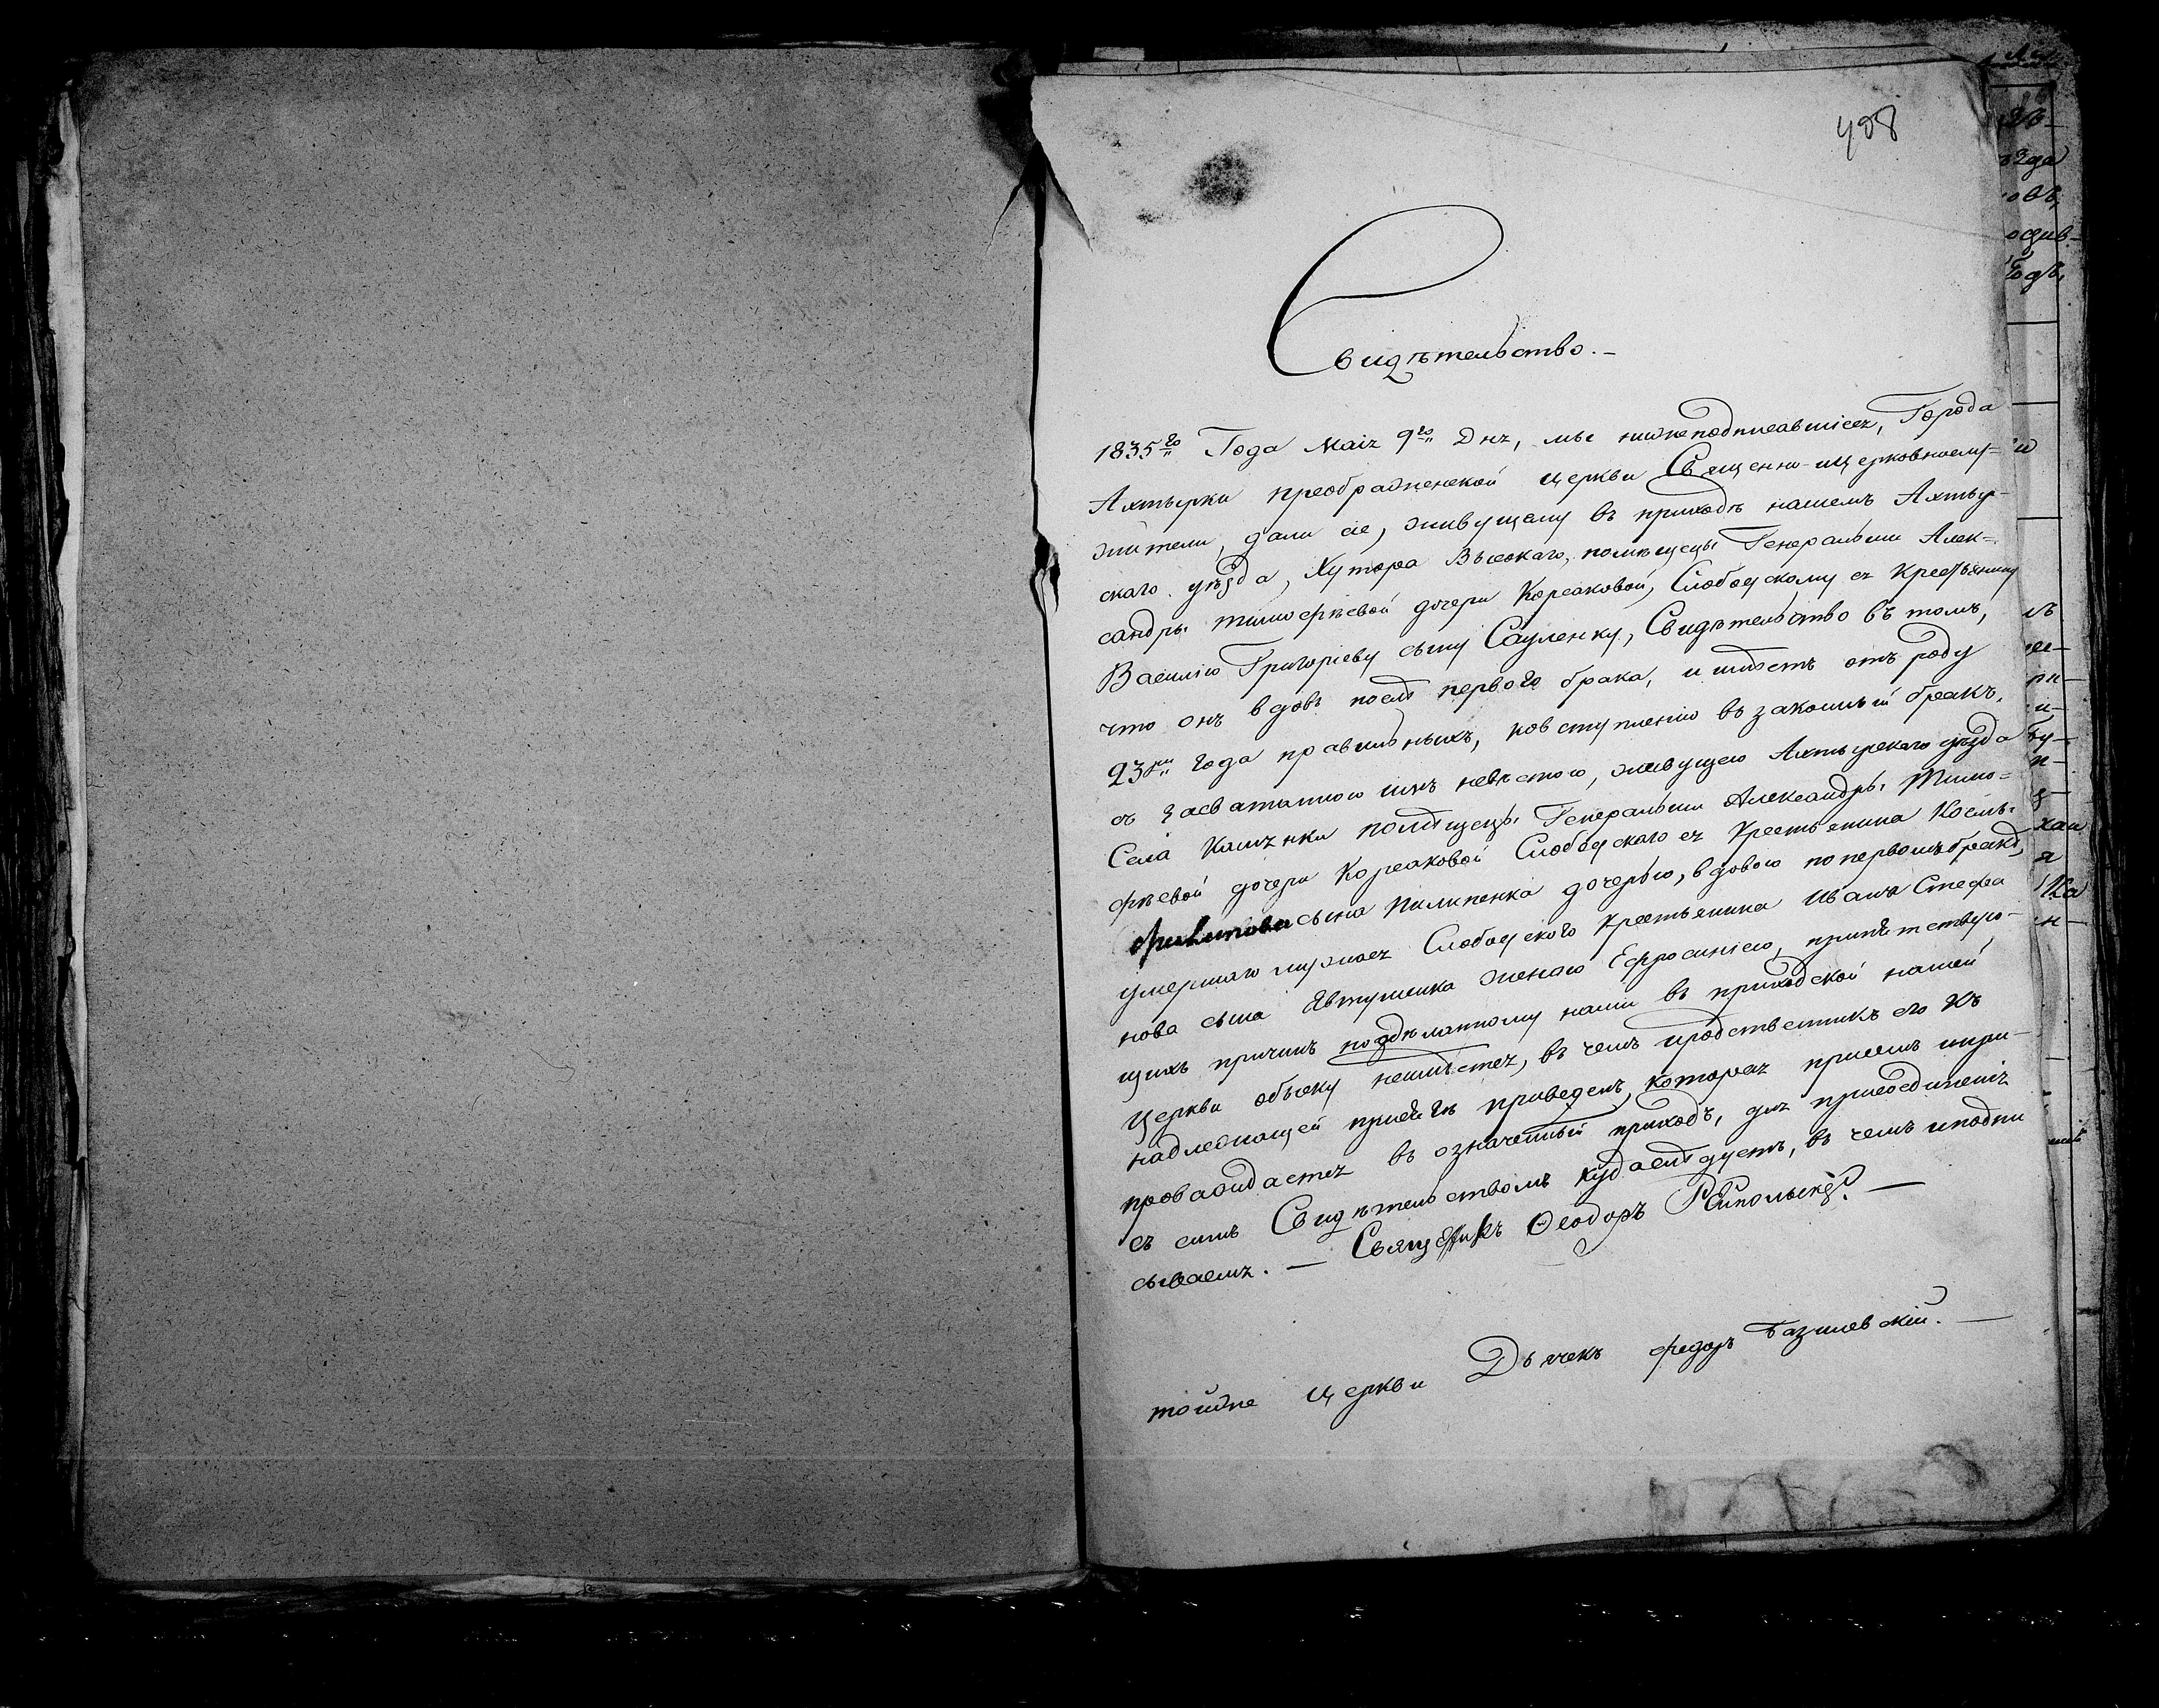 498
Свидѣтельство. —
1835го Года Маія 9го Дня, мы нижеподписавшіеся, Города
Ахтырки преображенской церкви Священно-церковнослу=
жители, дали сіе, живущему въ приходѣ нашемъ Ахтыр-
скаго уѣзда, Хутора Высокаго, помѣщецы Генеральши Алек=
сандры тимофѣевой дочери Корсаковой, Слободскому ея Крестьянину
Василію Григоріеву сыну Сауленку, Свидѣтельство въ томъ,
что онъ вдовъ послѣ перваго брака, и имѣетъ отъ роду
23ри года правильныхъ, ковступленію възаконный бракъ,
съ засватанною имъ невѣстою, живущею Ахтырскаго уѣзда
Села помѣщецы Генеральши Александры Тимо=
фѣевой дочери Корсаковой Слободскаго ея Крестьянина Косьмы
филипова сына Пилипенка дочерью, вдовою попервомъ бракѣ,
умершаго мужа Слободского Крестьянина Ивана Стефа
нова сына Явтушенка женою Ефросиніею, препятствую-
щихъ причинъ поздѣланному нами въ приходской нашей
Церкви обыску неимѣется, въ чемъ иродственникъ его къ
надлежащей присягѣ приведенъ, которая присемъ ипре-
провождается въ означенный приходъ, для присоединенія
съ симъ Свидѣтельствомъ кудаслѣдуетъ, въ чемъ иподпи
сываемъ. — Священикъ Ѳеодоръ Рейпольскій. —
тойже Церкви Дьячекъ федоръ Базилевскій. —